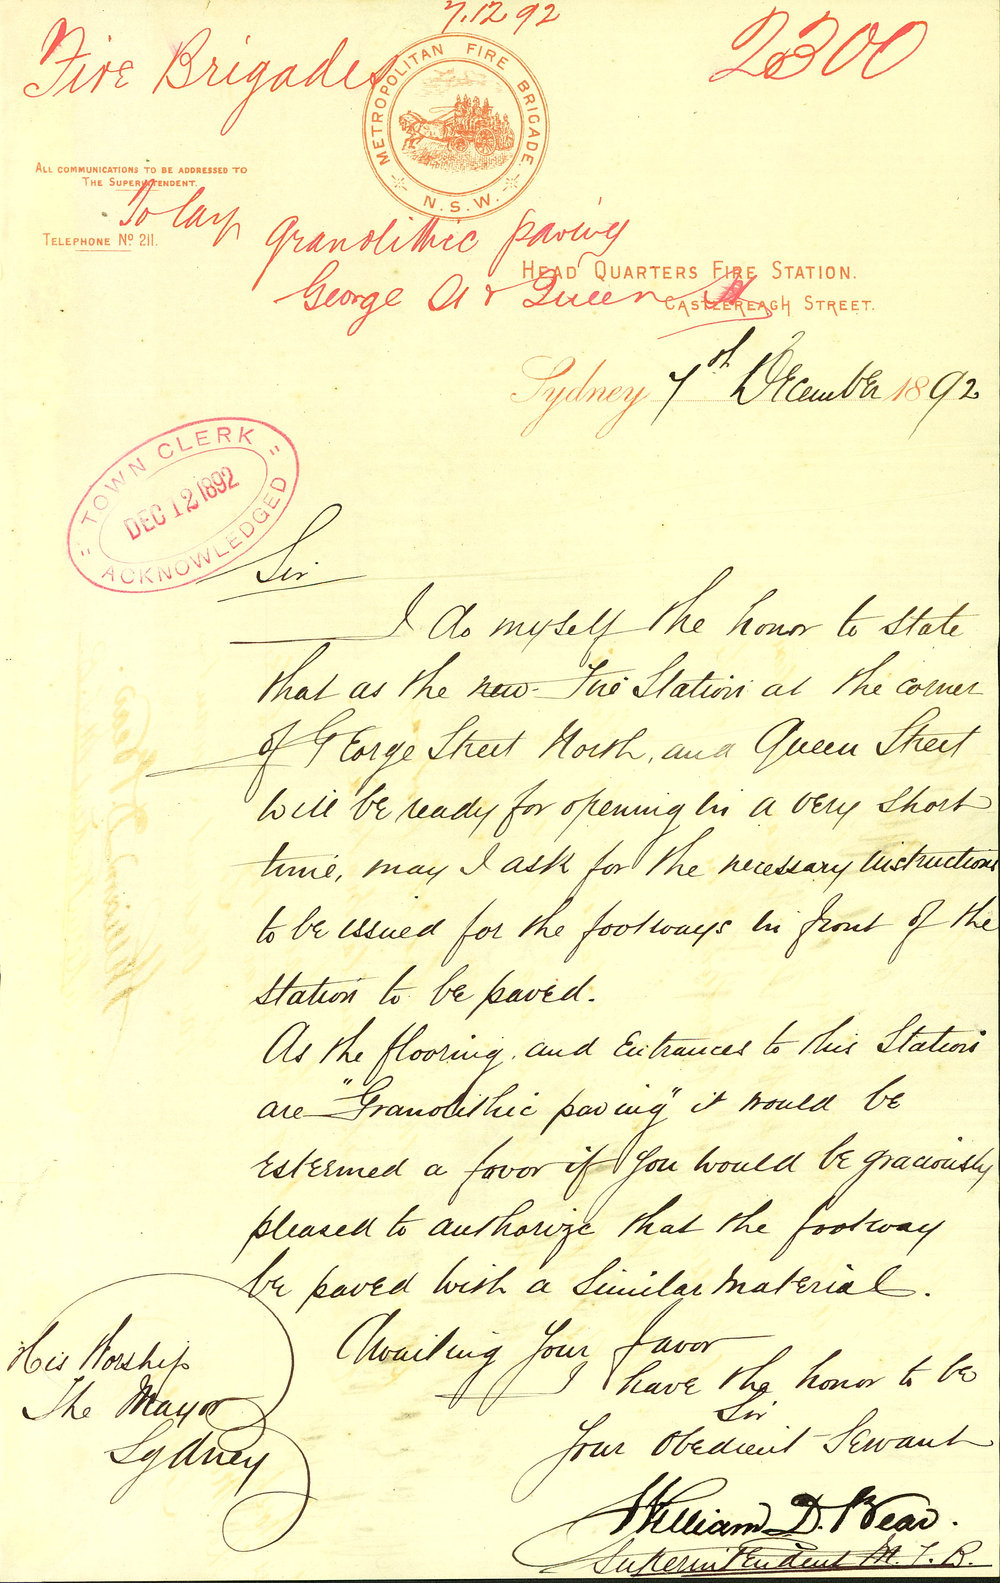 7.12.92
Fire Brigades
2300
METROPOLITAN FIRE BRIGADE.
N.S.W.
ALL COMMUNICATIONS TO BE ADDRESSED TO
THE SUPERINTENDENT.
TELEPHONE No 211.
To lay
Granolithic paving
George St & Queen St
HEAD QUARTERS FIRE STATION.
CASTLEREAGH STREET.
Sydney 7th December 1892
"TOWN CLERK"
DEC 12 1892
ACKNOWLEDGED
Sir
I do myself the honor to state
that as the new Fire Station at the corner
of George Street North, and Queen Street
will be ready for opening in a very short
time, may I ask for the necessary instructions
to be issued for the footways in front of the
Station to be paved.
As the flooring and entrances to this Station
are "Granolithic paving" it would be
esteemed a favor if you would be graciously
pleased to authorize that the footway
be paved with a similar material.
Awaiting your favor
I have the honor to be
Sir
Your Obedient Servant
William D. Bear.
Superintendent M.F.B.
His Worship
The Mayor
Sydney